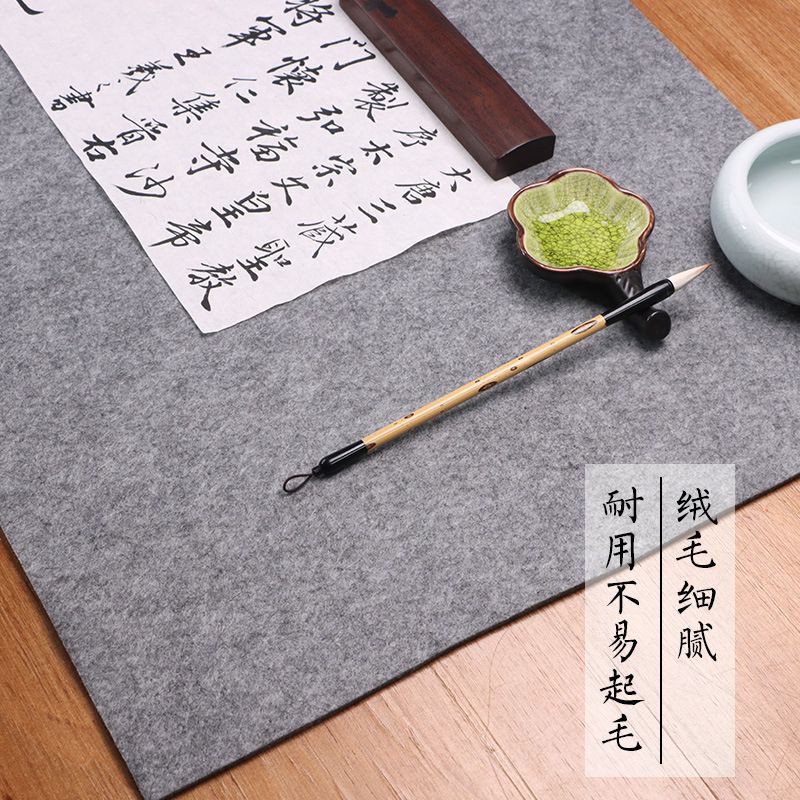 大唐三藏聖教
序太宗文皇帝
製弘福寺沙
門懷仁集晉右
將軍王羲之書
绒毛细腻
耐用不易起毛